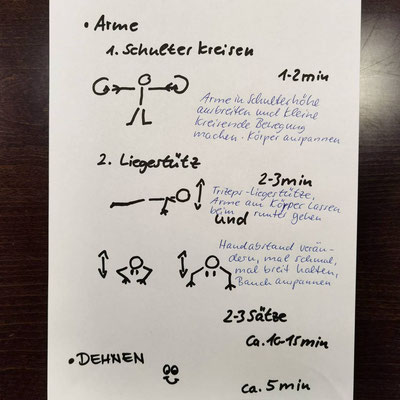 • Arme
1. Schulter kreisen
1-2 min
Arme in Schulterhöhe
ausbreiten und kleine
kreisende Bewegung
machen - Körper anspannen
2. Liegestütz
2-3 min
Trizeps-Liegestütze,
Arme am Körper lassen
beim runter gehen
und
Handabstand verän-
dern, mal schmal,
mal breit halten,
Bauch anspannen
2-3 Sätze
ca. 10-15 min
• DEHNEN
ca. 5 min